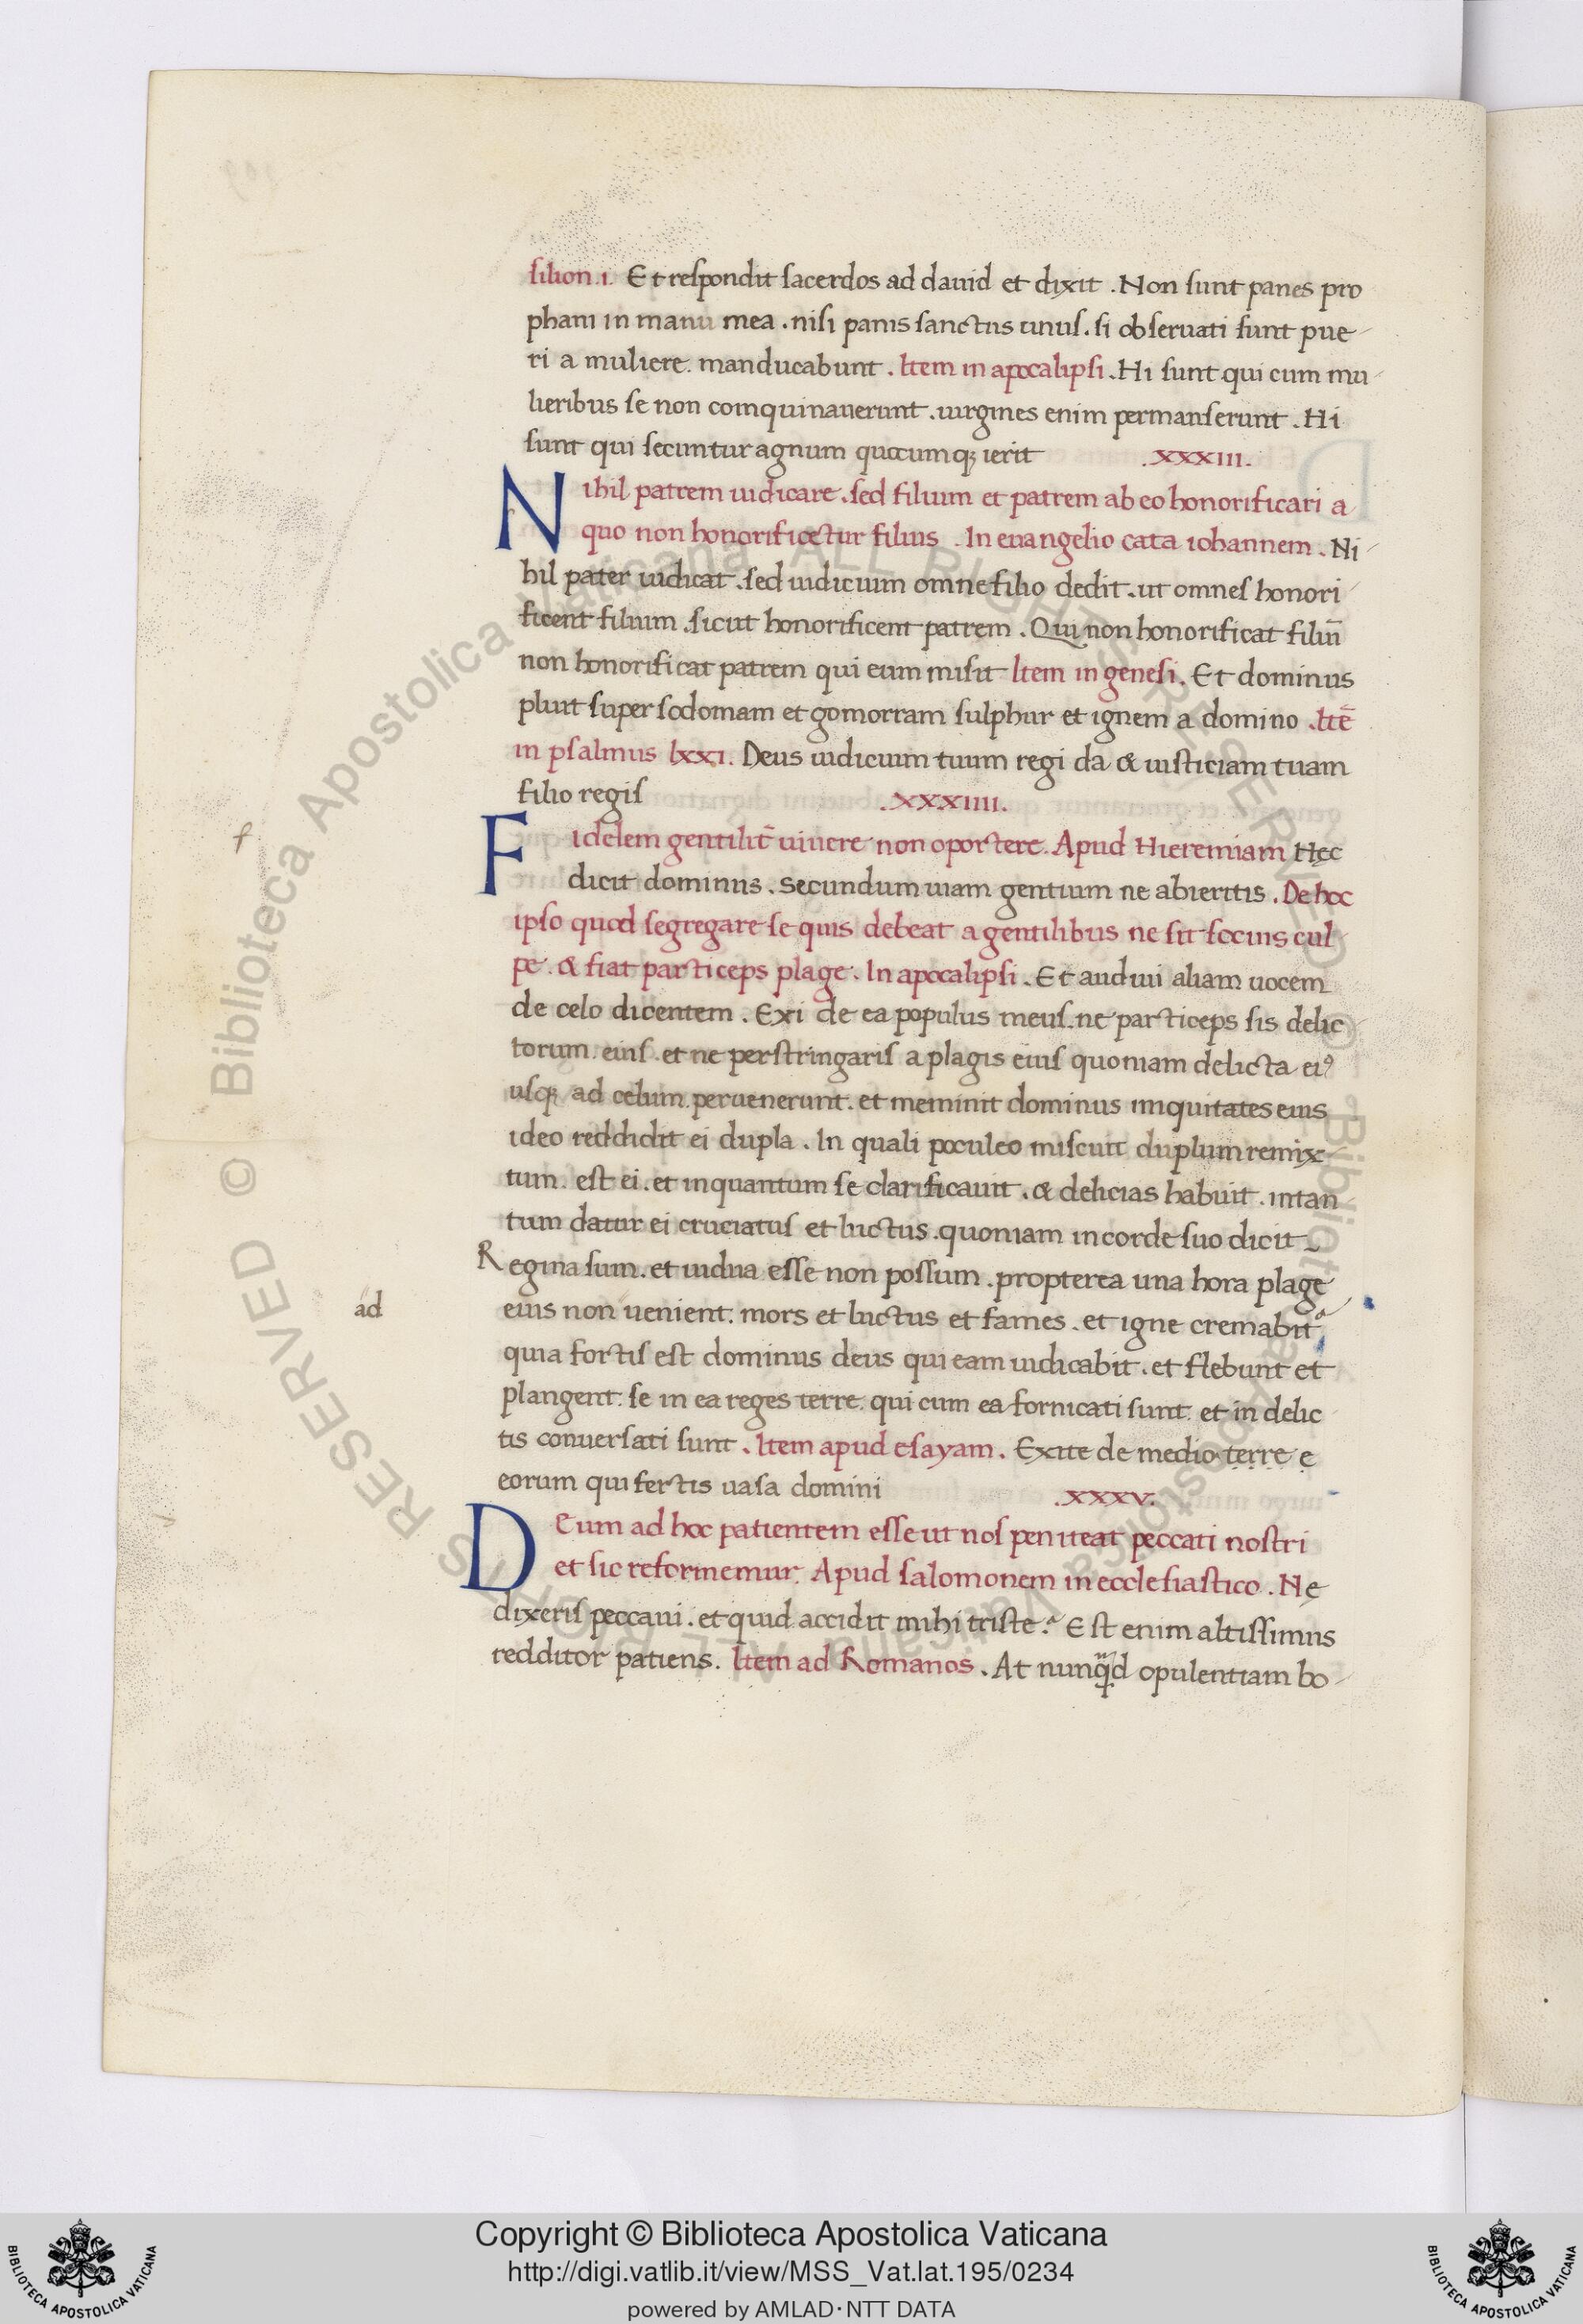 silion .i. Et respondit sacerdos ad dauid et dixit . Non sunt panes pro
phani in manu mea . nisi panis sanctus unus . si obseruati sunt pue
ri a muliere . manducabunt . Item in apocalipsi . Hi sunt qui cum mu
lieribus se non comquinauerunt . uirgines enim permanserunt . Hi
sunt qui secuntur agnum quocumq; ierit .XXXIII.
Nihil patrem iudicare . sed filium et patrem ab eo honorificari a
quo non honorificetur filius . In euangelio cata iohannem . Ni
hil pater iudicat . sed iudicium omne filio dedit . ut omnes honori
ficent filium . sicut honorificent patrem . Qui non honorificat filiũ
non honorificat patrem qui eum misit Item in genesi . Et dominus
pluit super sodomam et gomorram sulphur et ignem a domino . Itẽ
in psalmus lxxi. Deus iudicium tuum regi da & iusticiam tuam
filio regis .XXXIIII.
f
Fidelem gentilit̃ uiuere non oportere . Apud Hieremiam Hec
dicit dominus . secundum uiam gentium ne abieritis . De hoc
ipso quod segregare se quis debeat a gentilibus ne sit socius cul
pe . & fiat particeps plage . In apocalipsi . Et audiui aliam uocem
de celo dicentem . Exi de ea populus meus . ne particeps sis delic
torum . eius . et ne perstringaris a plagis eius quoniam delicta eiꝰ
usq; ad celum . peruenerunt . et meminit dominus iniquitates eius
ideo reddidit ei dupla . In quali poculeo miscuit duplum remix
tum . est ei . et inquantum se clarificauit . & delicias habuit . intan
tum datur ei cruciatus et luctus . quoniam in corde suo dicit
Regina sum . et uidua esse non possum . propterea una hora plage
ad
eius non uenient . mors et luctus et fames . et igne cremabit
quia fortis est dominus deus qui eam iudicabit . et flebunt et
plangent . se in ea reges terre . qui cum ea fornicati sunt . et in delic
tis conuersati sunt . Item apud esayam . Exite de medio terre e
eorum qui fertis uasa domini .XXXV.
Deum ad hoc patientem esse ut nos peniteat peccati nostri
et sic reformemur . Apud salomonem in ecclesiastico . Ne
dixeris peccaui . et quid accidit mihi triste . Est enim altissimus
redditor patiens . Item ad Romanos . At nunqd opulentiam bo
Copyright © Biblioteca Apostolica Vaticana
http://digi.vatlib.it/view/MSS_Vat.lat.195/0234
powered by AMLAD·NTT DATA
BIBLIOTECA APOSTOLICA VATICANA
BIBLIOTECA APOSTOLICA VATICANA
© Biblioteca Apostolica Vaticana ALL RIGHTS RESERVED
© Biblioteca Apostolica Vaticana ALL RIGHTS RESERVED